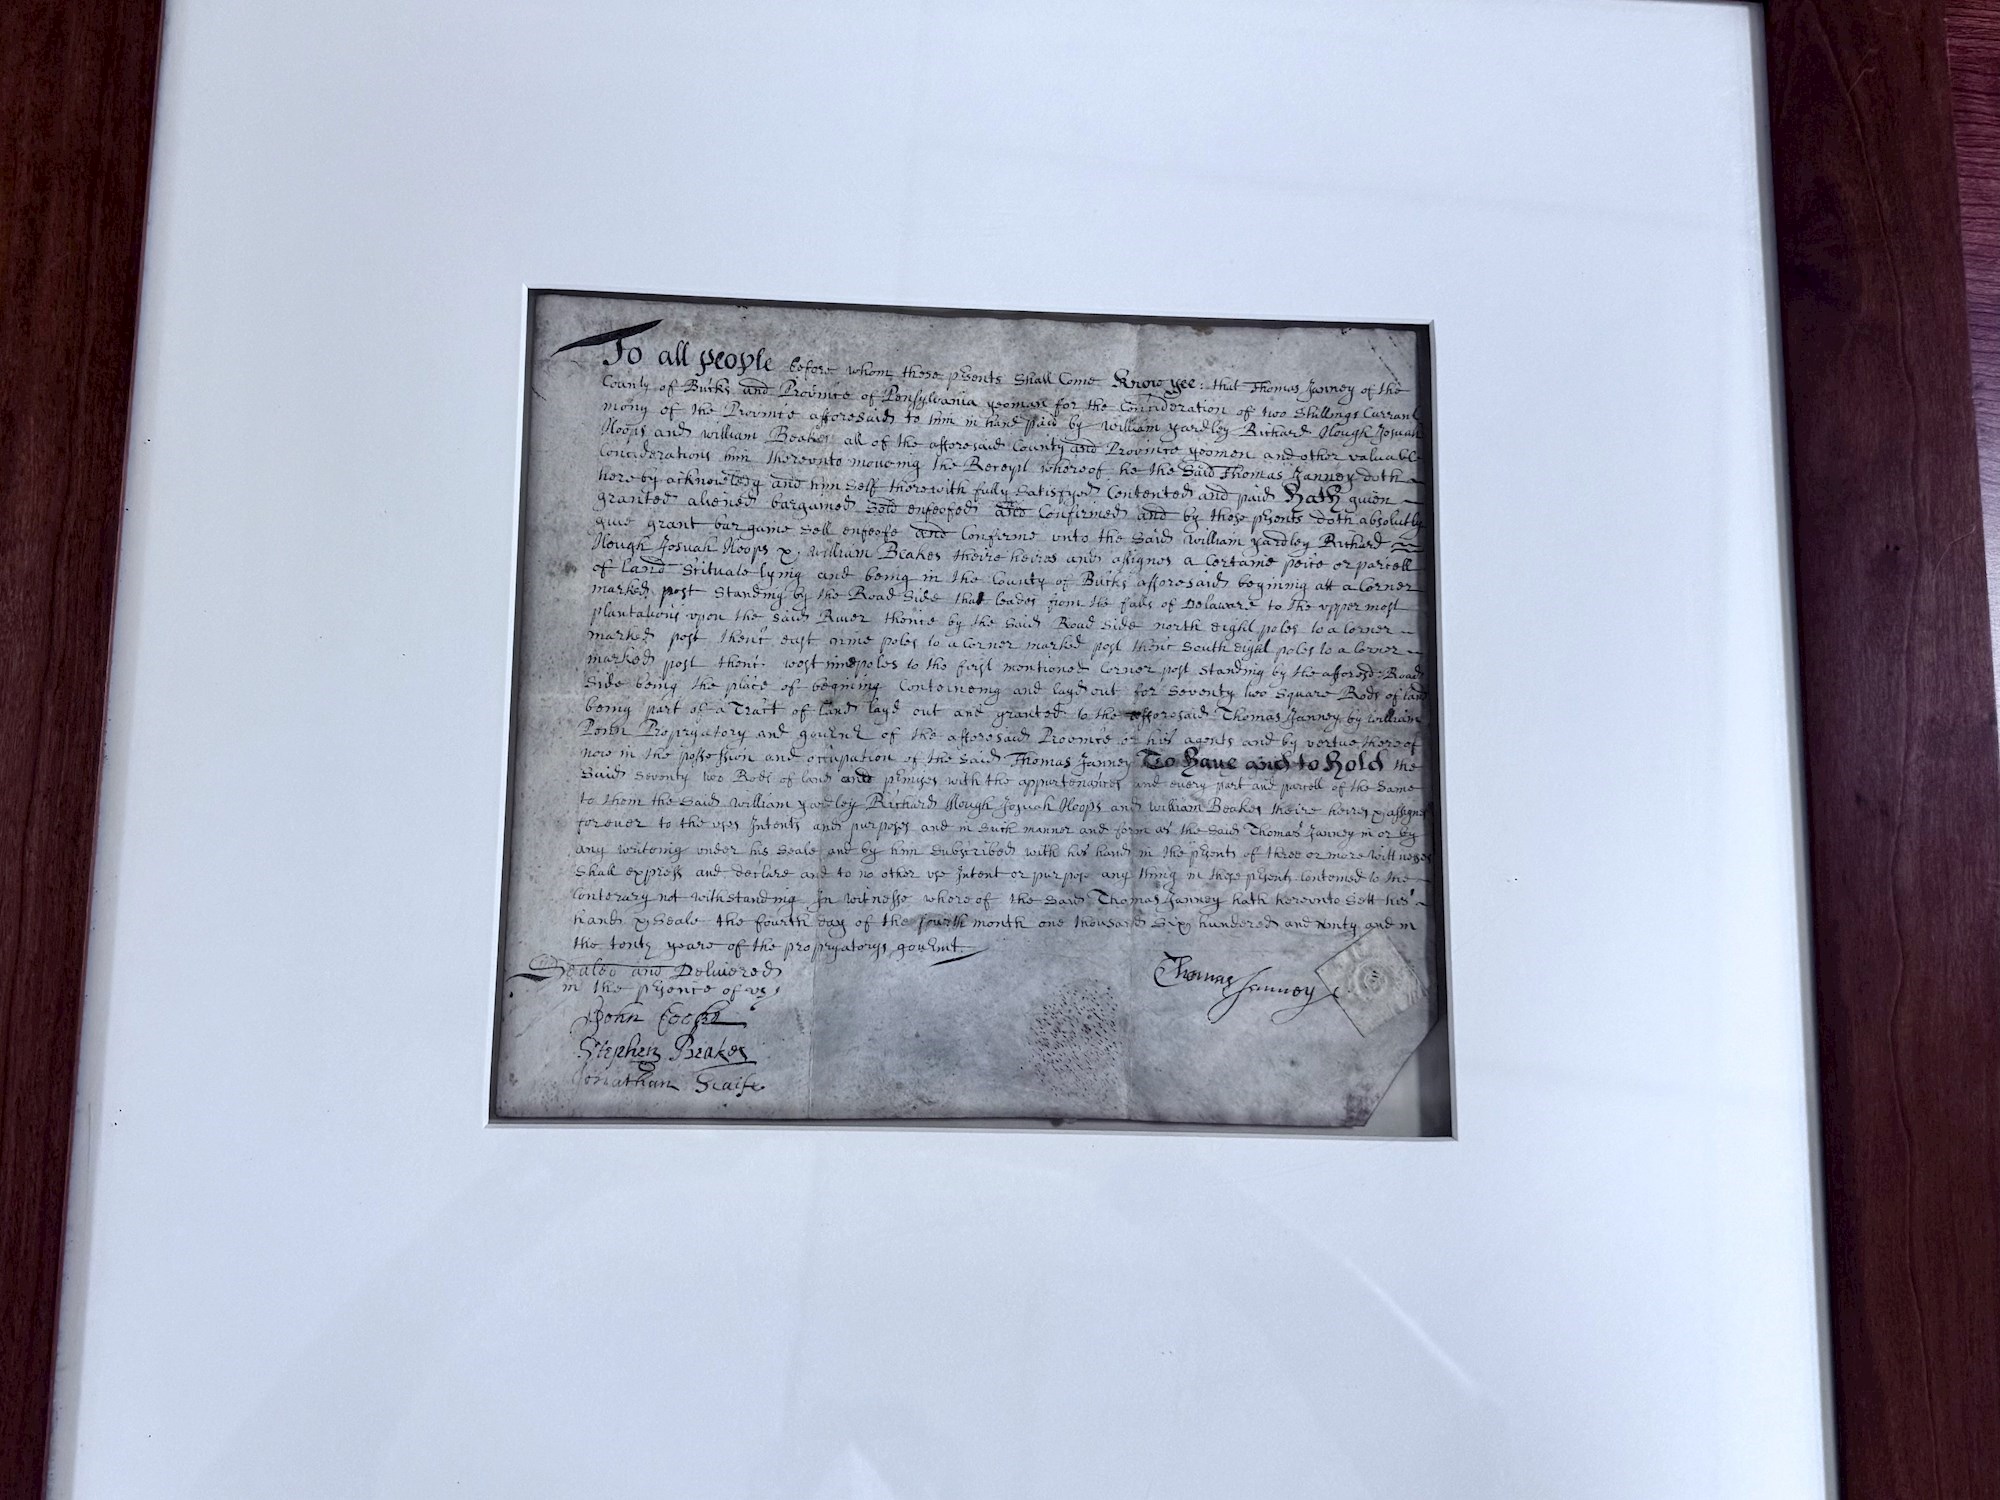 To all people before whom these psents Shall Come Know yee: that Thomas Janney of the
County of Bucks and Province of Pensylvania yeoman for the Consideration of two Shillings Currant
mony of the Province afforesaid to him in hand paid by William Yardley Richard Hough Josuah
Hoops and William Beakes all of the afforesaid County and Province yeomen and other valuable
Considerations him therevnto moveing the Receypt whereof he the Said Thomas Janney doth
here by acknowledg and him Self therewith fully Satisfyed Contented and paid Hath given
granted aliened bargained Sold enfeofed and Confirmed and by these psents doth absolutly
give grant bargaine Sell enfeofe and Confirme vnto the Said William Yardley Richard
Hough Josuah Hoops x William Beakes theire heires and assignes a Certaine peice or parcell
of land Scituate lying and being in the County of Bucks afforesaid begining att a Corner
marked post Standing by the Road Side that leades from the falls of Delaware to the vpper most
plantations vpon the said River thence by the Said Road Side north eight poles to a Corner
marked post thenc east nine poles to a Corner marked post thenc South eight poles to a Corner
marked post thenc west nine poles to the first mentioned Corner post Standing by the afforesd Road
Side being the place of begining Conteineing and layd out for Seventy two Square Rods of land
being part of a Tract of land layd out and granted to the afforesaid Thomas Janney by William
Penn Propryatory and govenr of the afforesaid Province or his agents and by vertue thereof
now in the possession and occupation of the Said Thomas Janney To Have and to Hold the
Said Seventy two Rods of land and pmises with the appurtenances and every part and parcell of the Same
to them the Said William Yardley Richard Hough Josuah Hoops and William Beakes theire heires x assignes
forever to the vses Intents and purposes and in Such manner and form as the Said Thomas Janney in or by
any writeing vnder his Seale and by him Subscribed with his hand in the psents of three or more wittnesses
Shall express and declare and to no other vse Intent or purpose any thing in these psents Conteined to the
Conterary not withstanding In witnesse whereof the Said Thomas Janney hath herevnto Sett his
hand x Seale the fourth day of the fourth month one thousand Six hundered and ninty and in
the tenth yeare of the propryatorys govermt.
Sealed and Delivered
in the psence of vs
Thomas Janney
John Cooke
Stephen Beakes
Jonathan Scaife